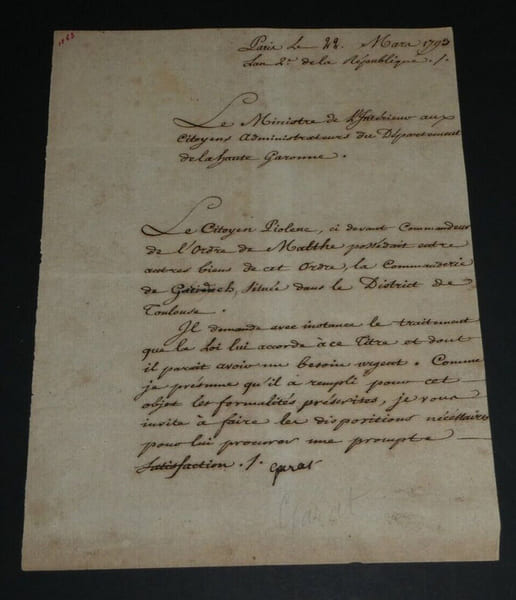 Paris Le 22. Mars 1793
Lan 2.e de la République ./.
Le Ministre de l'Intérieur aux
Citoyens Administrateurs du Département
de la haute Garonne.
Le Citoyen Piolenc, ci devant Commandeur
de l'Ordre de Malthe possédait entre
autres biens de cet Ordre, la Commanderie
de Garidech, Située dans le District de
Toulouse.
Il demande avec instance le traitement
que la Loi lui accorde à ce Titre et dont
il parait avoir un besoin urgent. Comme
je présume qu'il à rempli pour cet
objet les formalités préscrites, je vous
invite à faire les dispositions nécéssaires
pour lui procurer une prompte
Satisfaction ./. garat
Garat